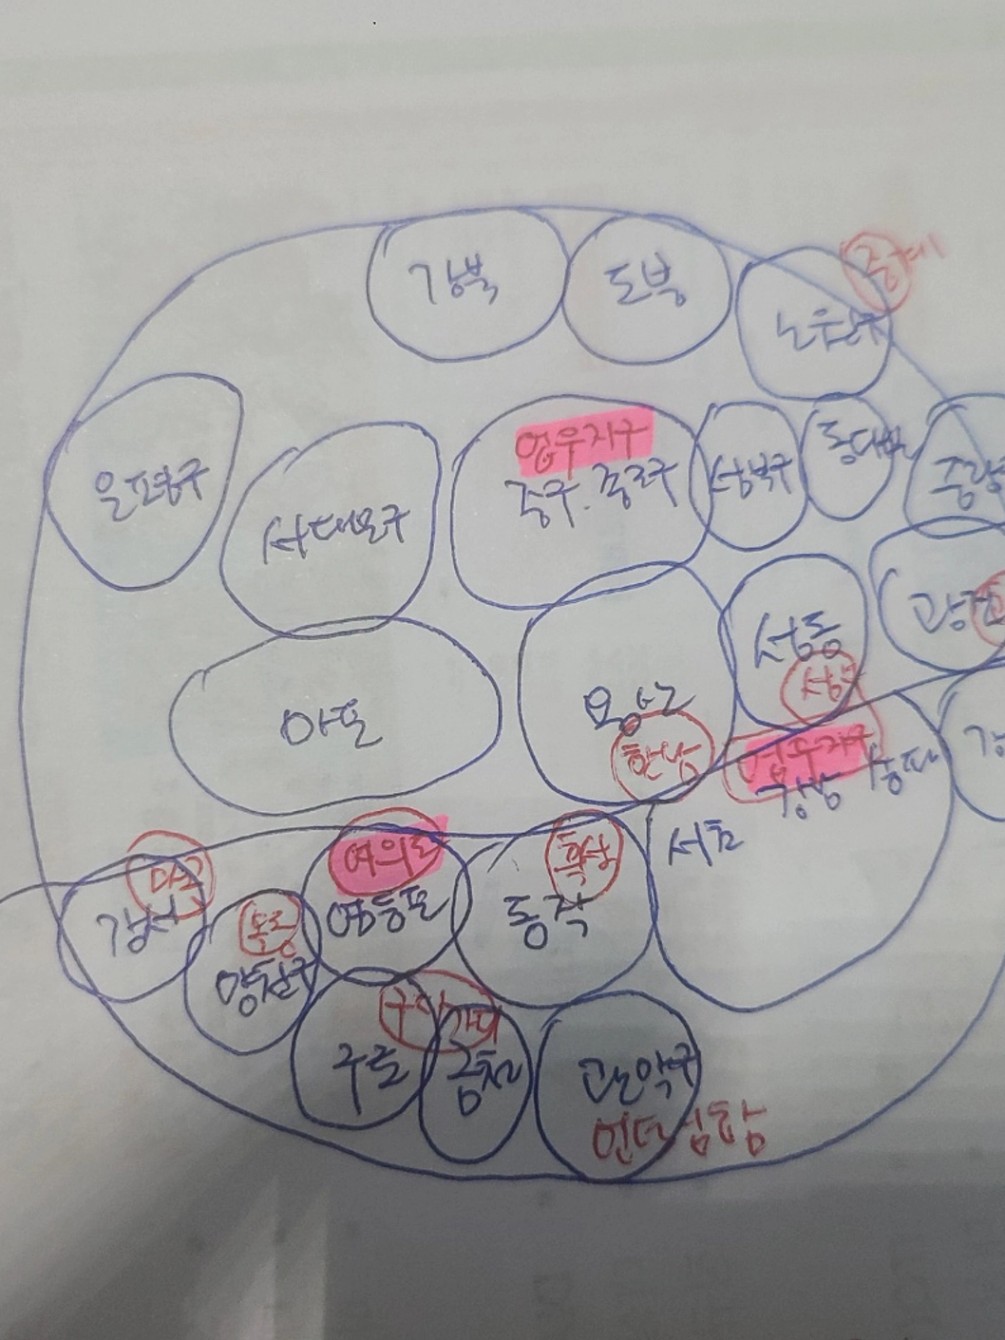 강북
도봉
노원구
중계
은평구
서대문구
업무지구
중구. 종로구
성북구
동대문
중랑
마포
용산
한남
성동
성수
광진
업무지구
강남 송파
서초
마곡
강서
목동
양천구
여의도
영등포
흑석
동작
구디
가디
구로
금천
관악구